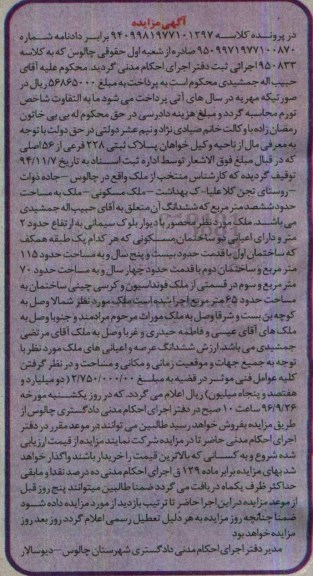 آگهی مزایده
در پرونده کلاسه ۹۴۰۹۹۸۱۹۷۷۱۰۱۲۹۷ برابر دادنامه شماره
۹۵۰۹۹۷۱۹۷۷۱۰۰۸۷۰ صادره از شعبه اول حقوقی چالوس که به کلاسه
۹۵۰۸۳۳ اجرائی ثبت دفتر اجرای مدنی گردید. محکوم علیه آقای
حبیب اله جمشیدی محکوم است به پرداخت به مبلغ ۵۶۸۶۵۰۰۰ ریال در
صورتیکه مهریه در سال های آتی پرداخت می شود ما به التفاوت شاخص
تورم محاسبه گردد و مبلغ هزینه دادرسی در حق محکوم له بی بی خاتون
رمضان زاده با وکالت خانم صیادی نژاد و نیم عشر دولتی در حق دولت با توجه
به معرفی مال از ناحیه وکیل خواهان پسلاک ثبتی ۲۲۸ فرعی از ۵۶ اصلی
که در قبال مبلغ فوق الاشعار توسط اداره ثبت اسناد به تاریخ ۹۴/۱۱/۷
توقیف گردیده که کارشناس منتخب از ملک واقع در چالوس - جاده دوات
- روستای نجن کلاعلیا - ک بهداشت - ملک مسکونی - ملک به مساحت
حدود ششصد متر مربع که ششدانگ آن متعلق به آقای حبیب اله جمشیدی
می باشد. ملک مورد نظر محصور با دیوار بلوک سیمانی به ارتفاع حدود ۲
متر و دارای اعیانی دو ساختمان مسکونی که هر کدام یک طبقه همکف
که ساختمان اول با قدمت حدود بیست و پنج سال و به مساحت حدود ۱۱۵
متر مربع و ساختمان دوم با قدمت حدود چهار سال و به مساحت حدود ۷۰
متر مربع و سوم در قسمتی از ملک فونداسیون و کرسی چینی ساختمان به
مساحت حدود ۶۵ متر مربع اجرا شده است ملک مورد نظر شمالا وصل به
کوچه بن بست و شرقا وصل به ملک موراث مرحوم مرادمند و جنوبا وصل به
ملک های آقای عیسی و فاطمه حیدری و غربا وصل به ملک آقای مرتضی
جمشیدی می باشد، ارزش ششدانگ عرصه و اعیانی های ملک مورد نظر با
توجه به جمیع جهات و موقعیت زمانی و مکانی و مساحت و در نظر گرفتن
کلیه عوامل فنی موثر در قضیه به مبلغ ۲/۷۵۰/۰۰۰/۰۰۰ (دو میلیارد و
هفتصد و پنجاه میلیون) ریال اعلام می گردد. که در روز یکشنبه مورخه
۹۶/۹/۲۶ ساعت ۱۰ صبح در دفتر اجرای احکام مدنی دادگستری چالوس از
طریق مزایده بفروش خواهد رسید طالبین می توانند در موعد مقرر در دفتر
اجرای احکام مدنی حاضر تا در مزایده شرکت نمایند مزایده از قیمت ارزیابی
شده شروع و به کسانی که بالاترین قیمت را خریدار باشند واگذار خواهد
شد بهای مزایده برابر ماده ۱۲۹ ق اجرای احکام مدنی ده درصد نقدا و مابقی
حداکثر ظرف یکماه دریافت می گردد ضمنا طالبین میتوانند پنج روز قبل
از موعد مزایده در این اجرا حاضر تا ترتیب بازدید از مورد مزایده داده شود
ضمنا چنانچه روز مزایده به هر دلیل تعطیل رسمی اعلام گردد روز بعد روز
مزایده خواهد بود
مدیر دفتر اجرای احکام مدنی دادگستری شهرستان چالوس - دیوسالار